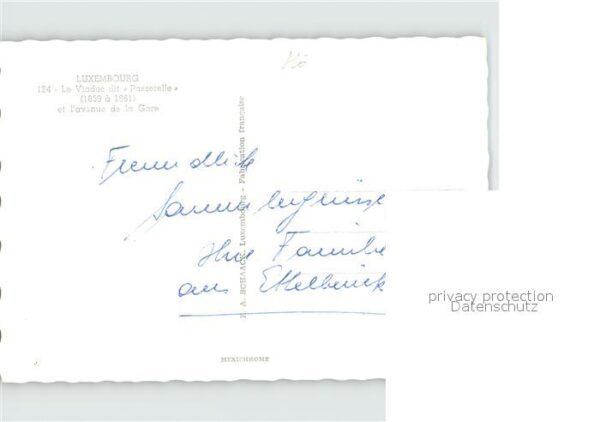 LUXEMBOURG
124 - Le Viaduc dit « Passerelle »
(1859 à 1861)
et l'avenue de la Gare
Freundliche
Sammlergrüsse
Ihre Familie
aus Ettelbrück
E. A. SCHAACK, Luxembourg - Fabrication française
MEXICHROME
privacy protection
Datenschutz